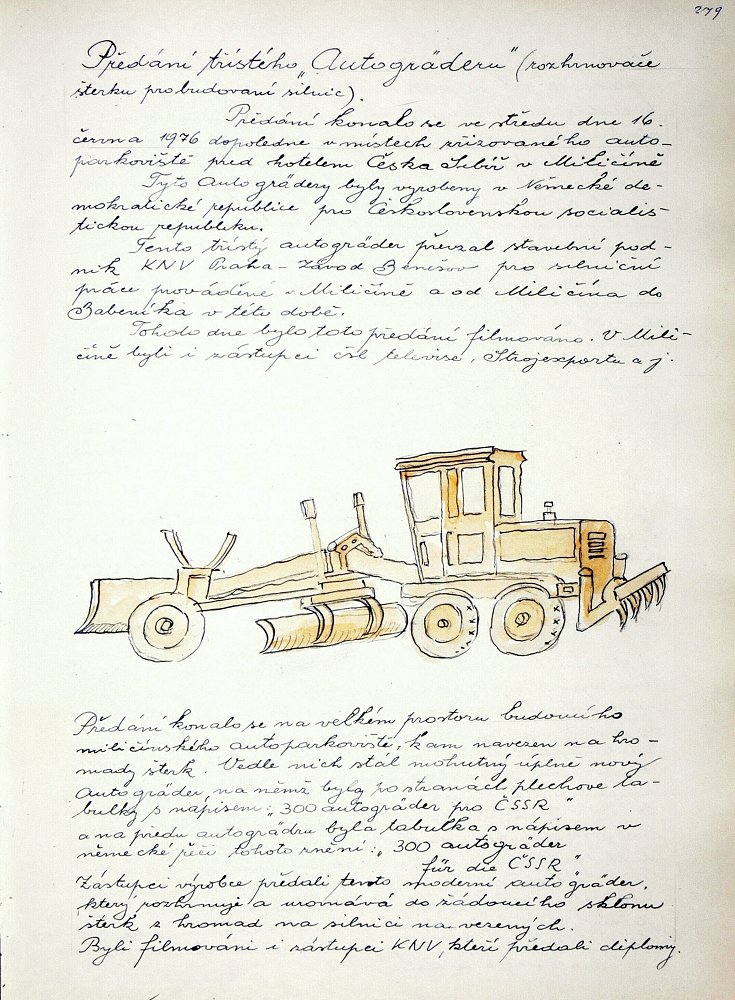 279
Předání třístého „Autogräderu" (rozhrnovače
štěrku pro budování silnic).
Předání konalo se ve středu dne 16.
června 1976 dopoledne v místech zřizovaného auto-
parkoviště před hotelem Česká Sibiř v Miličíně
Tyto Autogrädery byly vyrobeny v Německé de-
mokratické republice pro Československou socialis-
tickou republiku.
Tento třístý autogräder převzal stavební pod-
nik KNV Praha - Závod Benešov pro silniční
práce prováděné v Miličíně a od Miličína do
Babeníka v této době.
Tohoto dne bylo toto předání filmováno. V Mili-
číně byli i zástupci čsl televise, Strojexportu a j.
Předání konalo se na velkém prostoru budoucího
miličínského autoparkoviště, kam navezen na hro-
mady štěrk. Vedle nich stál mohutný úplně nový
Autogräder, na němž byly po stranách plechové ta-
bulky s nápisem: „300 autogräder pro ČSSR"
a na předu autogrädru byla tabulka s nápisem v
německé řeči tohoto znění: „300 autogräder
für die ČSSR"
Zástupci výrobce předali tento moderní autogräder,
který rozhrnuje a urovnává do žádoucího sklonu
štěrk z hromad na silnici navezených.
Byli filmováni i zástupci KNV, kteří předali diplomy.